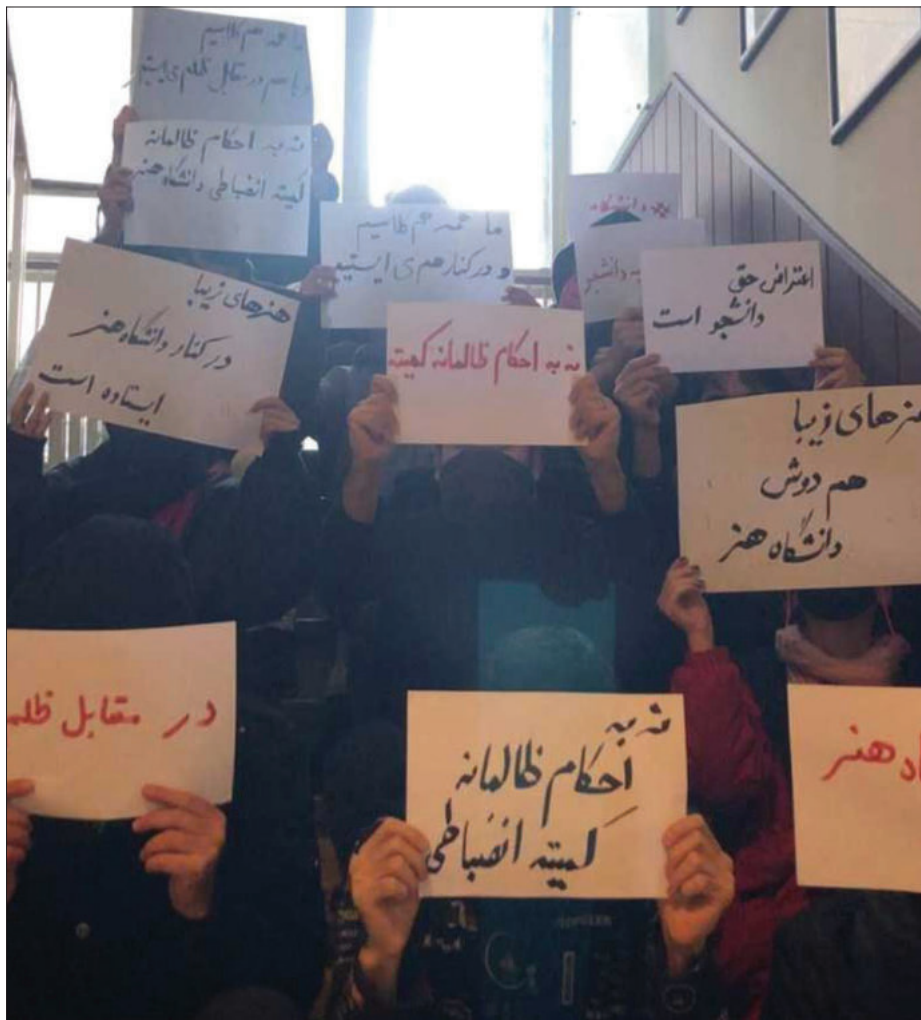 ما همه همکلاسیم
با هم در مقابل ظلم می‌ایستیم
نه به احکام ظالمانه
کمیته انضباطی دانشگاه هنر
ما همه هم کلاسیم
و در کنار هم می ایستیم
دانشگاه
به دانشجو
اعتراض حق
دانشجو است
هنرهای زیبا
در کنار دانشگاه هنر
ایستاده است
نه به احکام ظالمانه کمیته
هنرهای زیبا
هم دوش
دانشگاه هنر
در مقابل ظلم
نه به
احکام ظالمانه
کمیته انضباطی
هنر